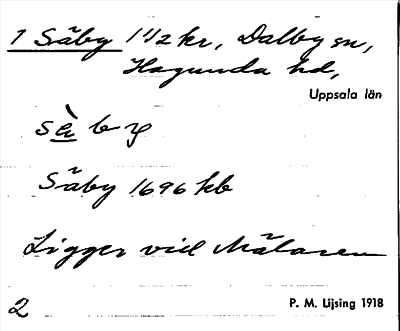 1 Säby 1 1/2 kr, Dalby sn,
Hagunda hd,
Uppsala län
Säby 1696 kb
Ligger vid Mälaren
2
P. M. Lijsing 1918